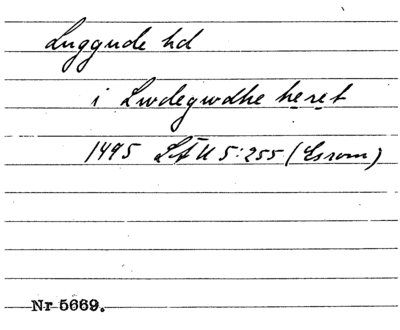 Luggude hd
i Lwdegwdhe heret
1495 LÅU 5:255 (Esrom)
Nr 5669.